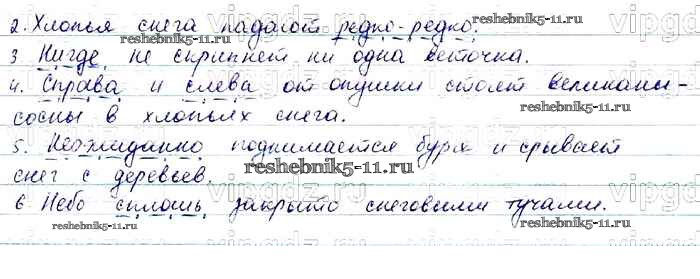 2. Хлопья снега падают редко-редко.
reshebnik5-11.ru
3 Нигде не скрипнет ни одна веточка.
4. Справа и слева от опушки стоят великаны-
reshebnik5-11.ru
сосны в хлопьях снега.
5. Неожиданно поднимается буря и срывает
reshebnik5-11.ru
снег с деревьев.
6 Небо сплошь закрыто снеговыми тучами.
reshebnik5-11.ru
reshebnik5-11.ru